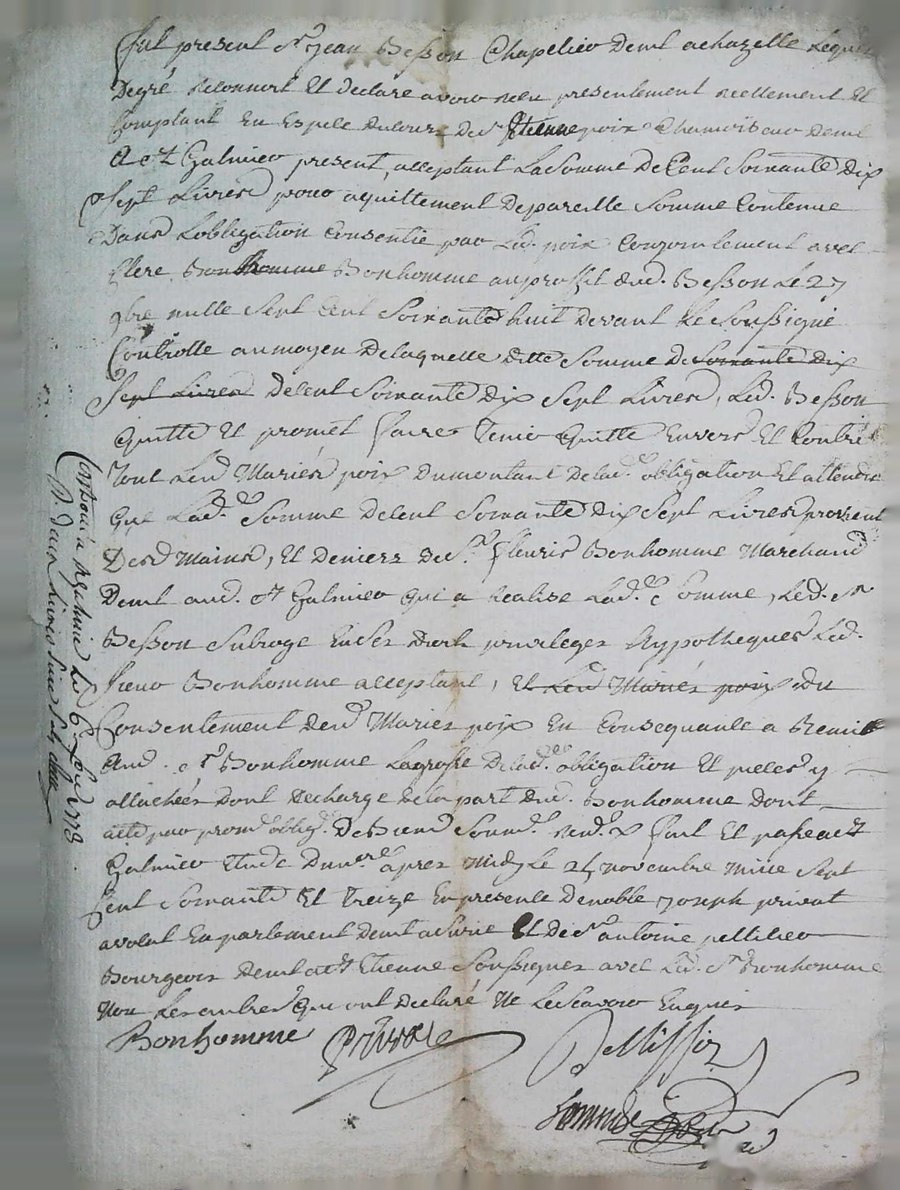 fut present Sr Jean Besson Chapelier demt a chazelle lequel
Degré Reconnoit Et declare avoir Reçu presentement reellement Et
Comptant En Espece De Sr Etienne poix Chamoiseur demt
A St Galmier present, acceptant La Somme De Cent Soixante Dix
Sept Livres pour aquittement De pareille Somme Contenue
Dans Lobligation Consentie par Led. poix Conjointement avec
Bonhomme au proffit dud. Besson Le 27
9bre mille Sept Cent Soixante huit devant Le Soussigné
Controllé au moyen De laquelle ditte Somme De Soixante dix
Sept Livres De Cent Soixante Dix Sept Livres, Led. Besson
Quitte Et promet faire Tenir Quitte Envers Et Contre
Tout Lesd Mariés poix Du montant De lad. obligation Et attendu
que Lad. Somme De Cent Soixante Dix Sept Livres provient
Des Mains, Et Deniers de Sr fleuris Bonhomme Marchand
Demt aud. St Galmier qui a Realisé Lad. Somme, Led. Sr
Besson Subroge En Ses Droits privileges hypotheques Led.
Sieur Bonhomme acceptant, Et Lesd Mariés poix du
Consentement desd Mariés poix En Consequance a Remis
Aud. Sr Bonhomme La grosse De lad. obligation Et pieces y
attachées Dont decharge De la part dud. Bonhomme Dont
acte par prom. oblig. De Biens Soum. Rend. fait Et passé a St
Galmier Etude Du nre après midy Le 25 novembre Mille Sept
Cent Soixante Et Treize En presence De noble Joseph privat
avocat En parlement demt a Et De Sr antoine pellissier
Bourgeois demt a St Etienne Soussignés avec Led. Sr Bonhomme
Non Les autres qui ont Declaré Ne Le Scavoir Enquis
Bonhomme Privat Pellissier
Controlé a St Galmier Le 6 1773
R. deux Livres